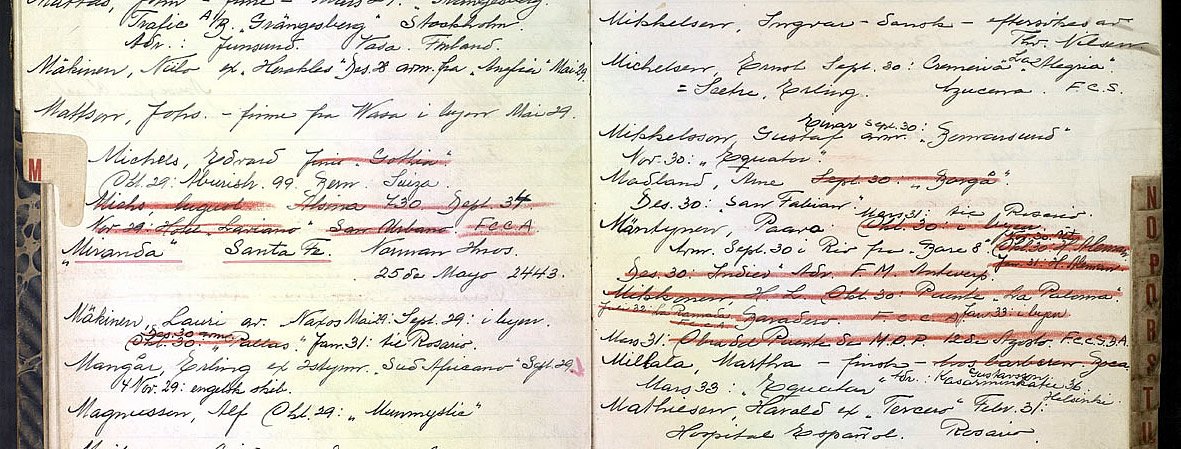 Trafic A/B "Grängesberg" Stockholm.
Adr.: Junsund. Vasa. Finland.
Mäkinen, Niilo ex "Herakles" Des. 28 arm. fra "Anefia" Mai 29
Mattson, Johs. - finne fra Wasa i byen Mai 29.
M
Michels, Edvard finn "Gothia"
Okt. 29: Aburish. 99. Bern. Suiza.
Michs, August Alsina 730 Sept. 34
Nov. 29: Hotel San Urbano FCCA
"Miranda" Santa Fe. Norman Hnos.
25 de Mayo 2443.
Mäkinen, Lauri av. Naxos Mai 29: Sept. 29: i byen.
Des. 30 arm.
Okt. 30: "Pallas" Jan. 31: til Rosario.
Mangår, Erling ex "Sud Africano" Sept. 29
4 Nov. 29: engelsk skib.
Magnusson, Alf Okt. 29: "Munmystic"
Mikkelsen, Ingvar - Dansk - eftersökes av
Thv. Nilsen
Michelsen, Ernst Sept. 30: "La Alegria".
= Saetre, Erling. Azucena. F.C.S.
Einar Sept. 30:
Mikkelsson, Gustaf arm.
Nov. 30: "Equator"
Madland, Arne Sept. 30: "Borgå".
Des. 30: "San Fabian"
Mars 31: til Rosario.
Mäntynen, Paavo. Okt. 30: i byen.
Arm. Sept. 30 i Rio fra "Bore 8" Okt. 30
Jan. 31:
Des. 30: "Indier" Adr. F.M. Antwerp.
Mikkonen, H. L. Okt. 30: Puente "La Paloma"
Baradero. F.C.C.A. Jan. 33: i byen
Mars 31: Obra del Puente del M.O.P. 12 de Agosto. F.C.C.G.B.A.
Milkala, Martha - finsk -
Gustavsson
Mars 33: "Equator" Adr.: Kasarminkatu 36
Helsinki.
Mathiesen, Harald ex "Tercero" Febr. 31:
Hospital Español. Rosario.
N
O
P
Q
R
S
T
U